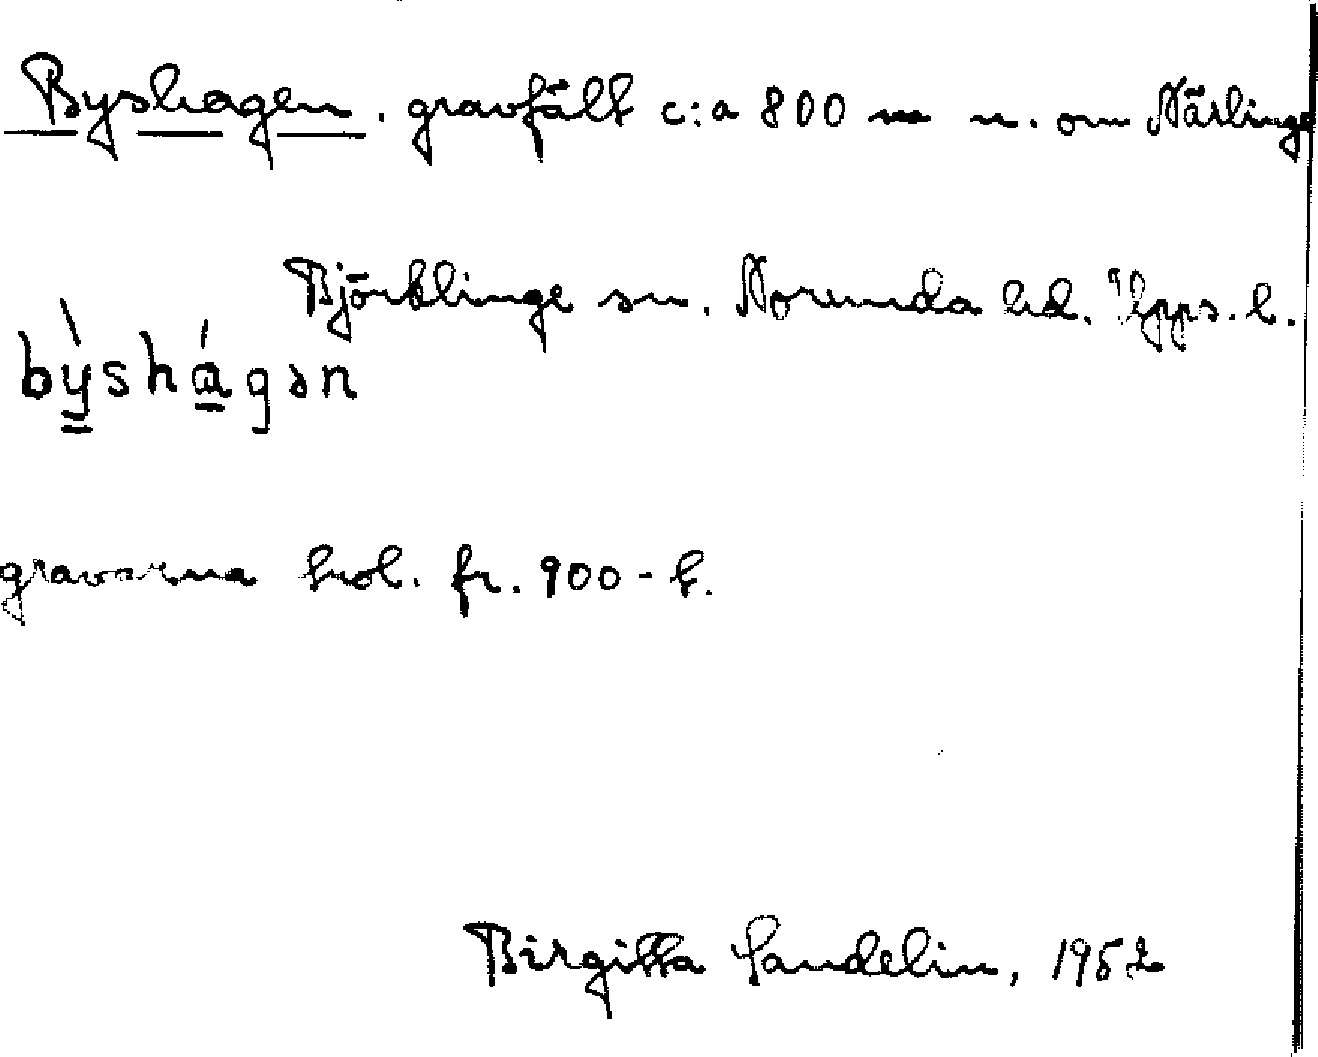 Byshagen. gravfält c:a 800 m n. om Närlinge
Björklinge sn. Norunda hd. Upps. l.
bỳshágən
gravarna trol. fr. 900-t.
Birgitta Sandelin, 1952